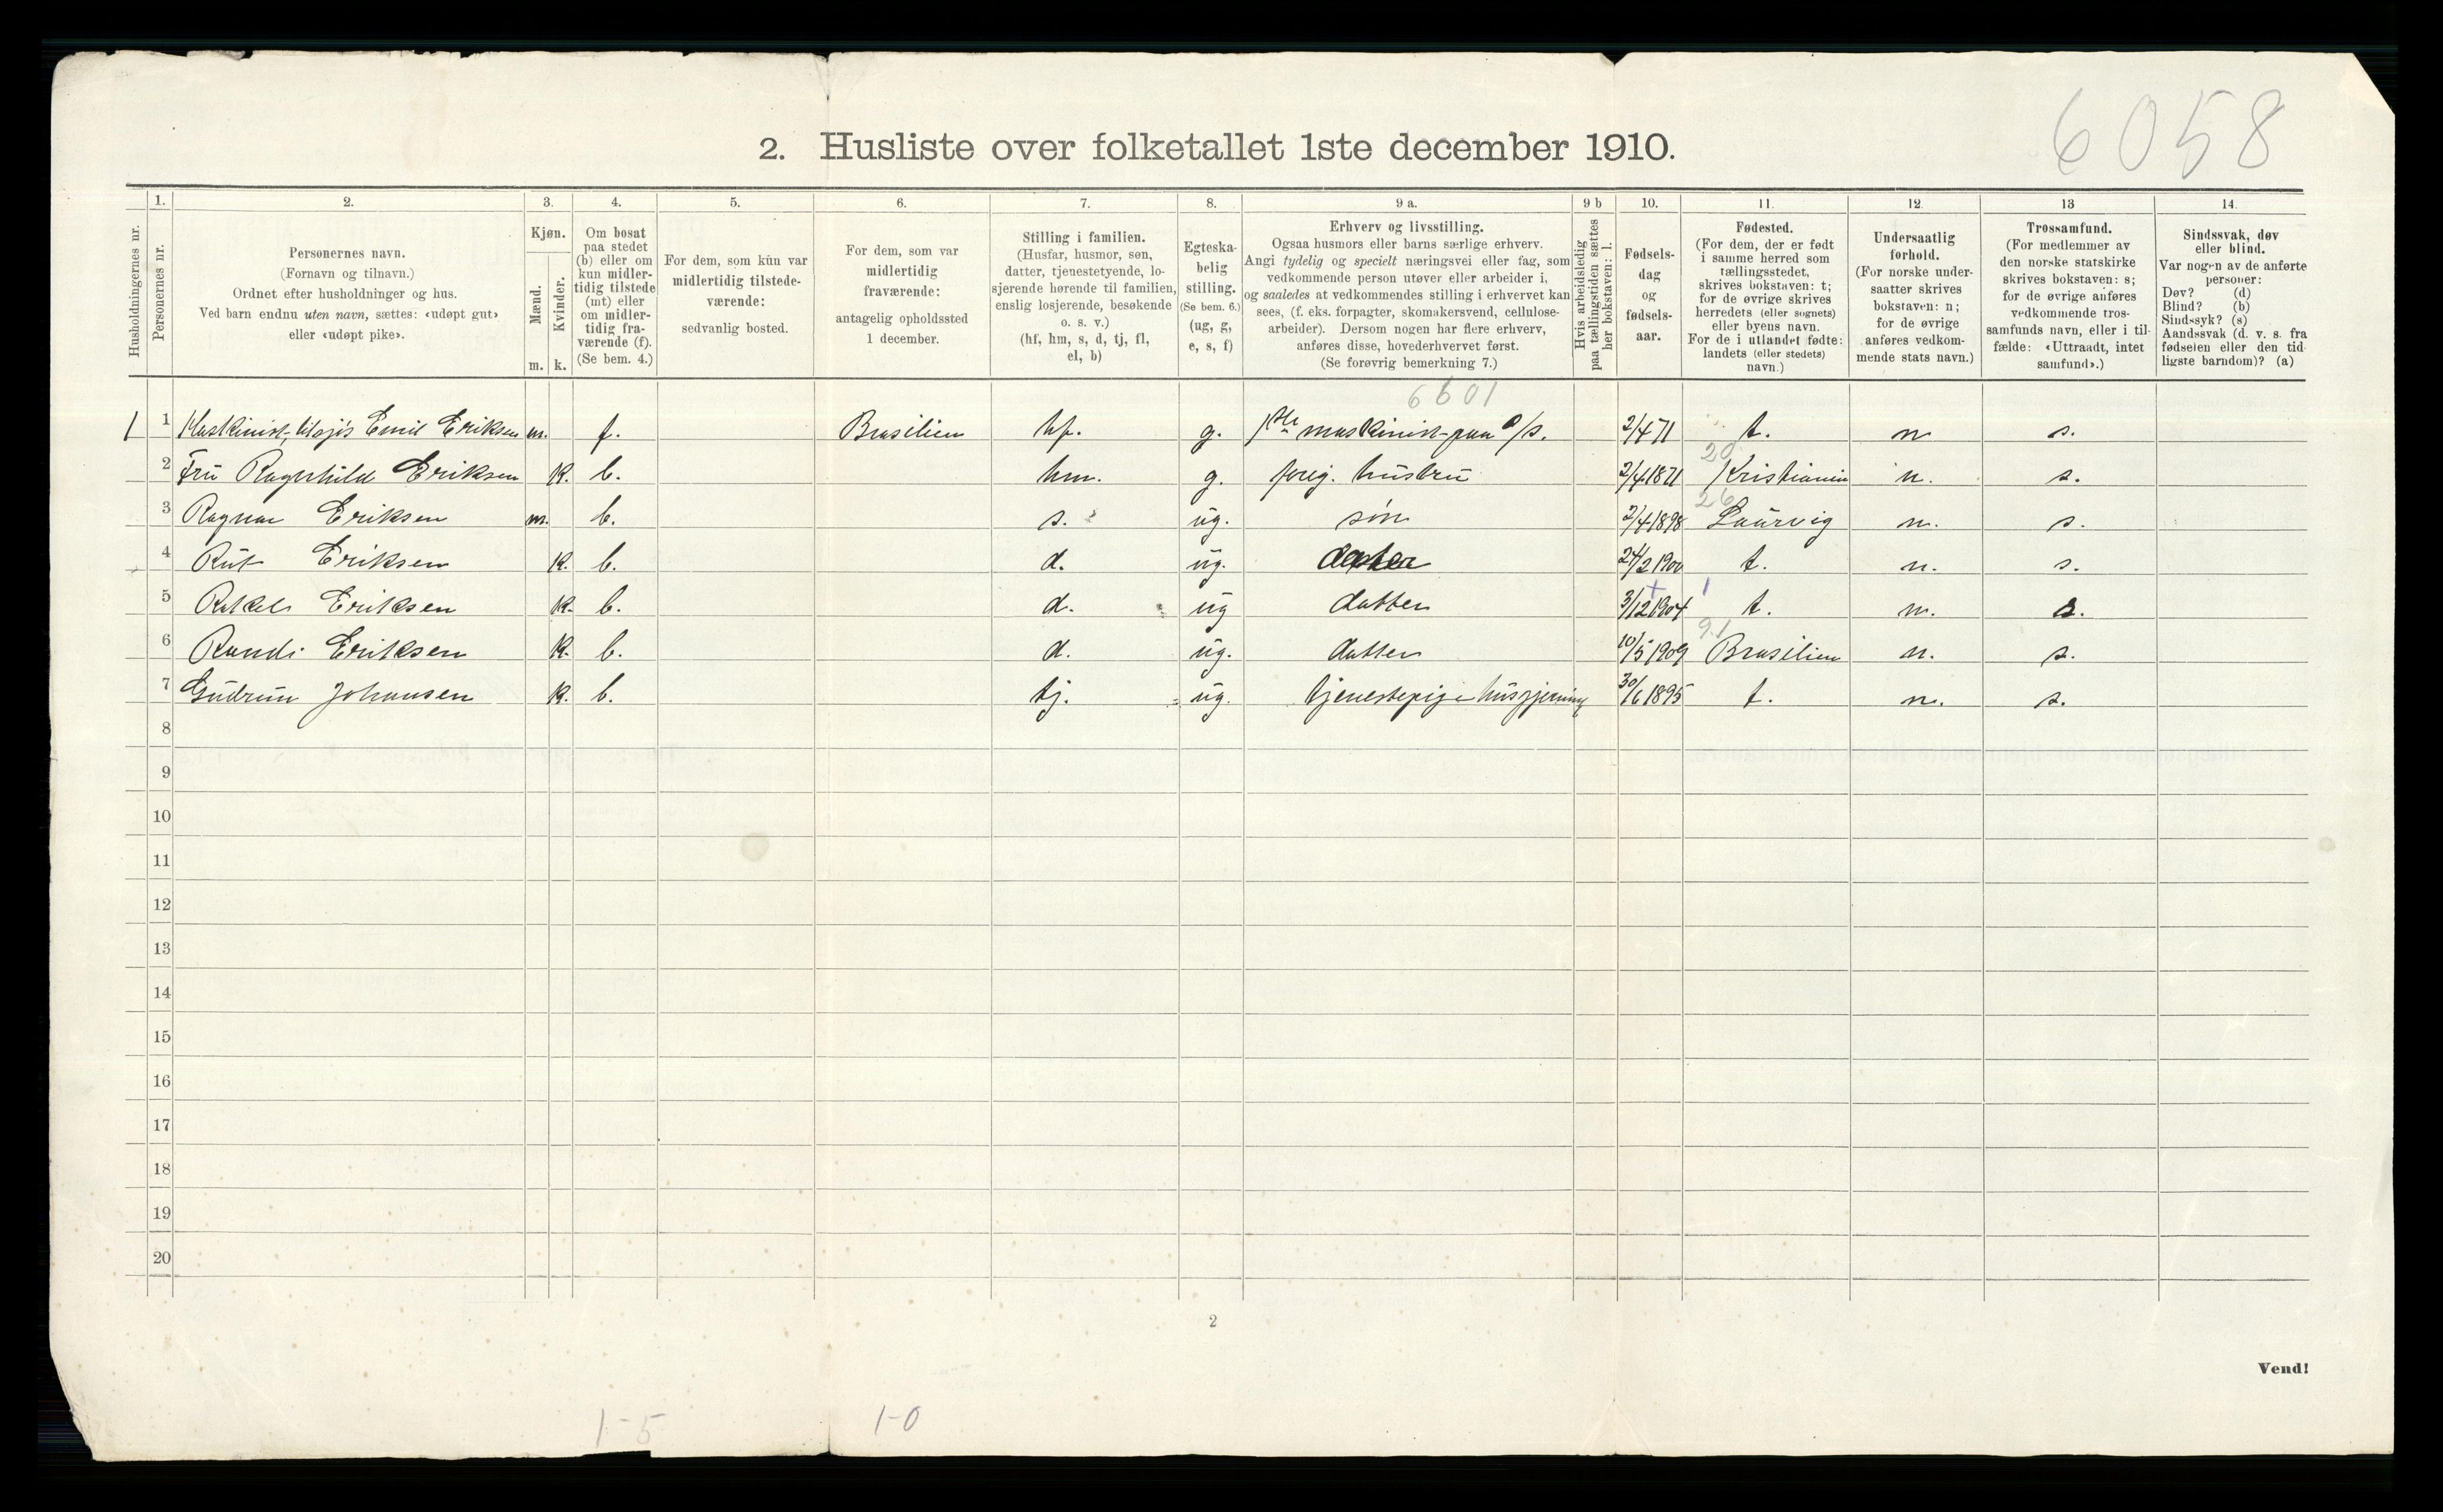 6058
2. Husliste over folketallet 1ste december 1910.
Husholdningernes nr.
1. Personernes nr.
2. Personernes navn.
(Fornavn og tilnavn.)
Ordnet efter husholdninger og hus.
Ved barn endnu uten navn, sættes: «udøpt gut»
eller «udøpt pike».
3. Kjøn.
Mænd. Kvinder.
m. k.
4. Om bosat
paa stedet
(b) eller om
kun midler-
tidig tilstede
(mt) eller
om midler-
tidig fra-
værende (f).
(Se bem. 4.)
5. For dem, som kun var
midlertidig tilstede-
værende:
sedvanlig bosted.
6. For dem, som var
midlertidig
fraværende:
antagelig opholdssted
1 december.
7. Stilling i familien.
(Husfar, husmor, søn,
datter, tjenestetyende, lo-
sjerende hørende til familien,
enslig losjerende, besøkende
o. s. v.)
(hf, hm, s, d, tj, fl,
el, b)
8. Egteska-
belig
stilling.
(Se bem. 6.)
(ug, g,
e, s, f)
9 a. Erhverv og livsstilling.
Ogsaa husmors eller barns særlige erhverv.
Angi tydelig og specielt næringsvei eller fag, som
vedkommende person utøver eller arbeider i,
og saaledes at vedkommendes stilling i erhvervet kan
sees, (f. eks. forpagter, skomakersvend, cellulose-
arbeider). Dersom nogen har flere erhverv,
anføres disse, hovederhvervet først.
(Se forøvrig bemerkning 7.)
9 b Hvis arbeidsledig
paa tællingstiden sættes
her bokstaven: l.
10. Fødsels-
dag
og
fødsels-
aar.
11. Fødested.
(For dem, der er født
i samme herred som
tællingsstedet,
skrives bokstaven: t;
for de øvrige skrives
herredets (eller sognets)
eller byens navn.
For de i utlandet fødte:
landets (eller stedets)
navn.)
12. Undersaatlig
forhold.
(For norske under-
saatter skrives
bokstaven: n;
for de øvrige
anføres vedkom-
mende stats navn.)
13 Trossamfund.
(For medlemmer av
den norske statskirke
skrives bokstaven: s;
for de øvrige anføres
vedkommende tros-
samfunds navn, eller i til-
fælde: «Uttraadt, intet
samfund».)
14. Sindssvak, døv
eller blind.
Var nogen av de anførte
personer:
Døv? (d)
Blind? (b)
Sindssyk? (s)
Aandssvak (d. v. s. fra
fødselen eller den tid-
ligste barndom)? (a)
6601
1 1 Maskinist, tilsjøs Emil Eriksen m. f. Brasilien hf. g. 1ste maskinist paa D/s. 2/4 71 t. n s.
20
2 Fru Ragnhild Eriksen k. b. hm. g. foreg. hustru 2/4 1871 Kristiania n. s.
26
3 Ragnar Eriksen m. b. s. ug. søn 2/4 1898 Laurvig n. s.
4 Rut Eriksen k. b. d. ug. datter 24/2 1900 t. n. s.
1
5 Rakel Eriksen k. b. d. ug datter 3/12 1904 t. n. s.
91
6 Randi Eriksen k. b. d. ug. datter 10/5 1909 Brasilien n. s.
7 Gudrun Johansen k. b. tj. ug. tjenestepige husgjerning 30/6 1895 t. n. s.
8
9
10
11
12
13
14
15
16
17
18
19
20
2
Vend!
1-5 1-0